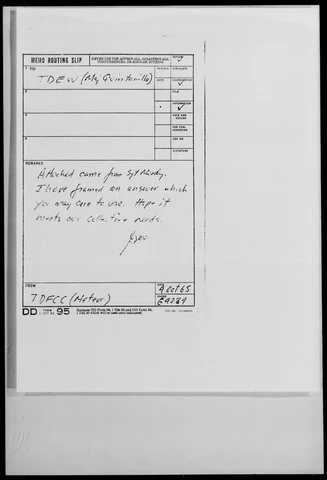 MEMO ROUTING SLIP
NEVER USE FOR APPROVALS, DISAPPROVALS, CONCURRENCES, OR SIMILAR ACTIONS
ACTION
1 TO
TDEW (Maj Quintanilla)
INITIALS
CIRCULATE
DATE
COORDINATION
2
FILE
INFORMATION
3
NOTE AND RETURN
PER CONVERSATION
4
SEE ME
SIGNATURE
REMARKS
Attached came from Sgt Moody.
I have framed an answer which
you may care to use. Hope it
meets our collective needs.
FROM
TDFCC (Meteor)
4 Oct 65
DD FORM 95
1 OCT 60
Replaces DD Form 94, 1 Feb 50 and DD Form 95,
1 Feb 50 which